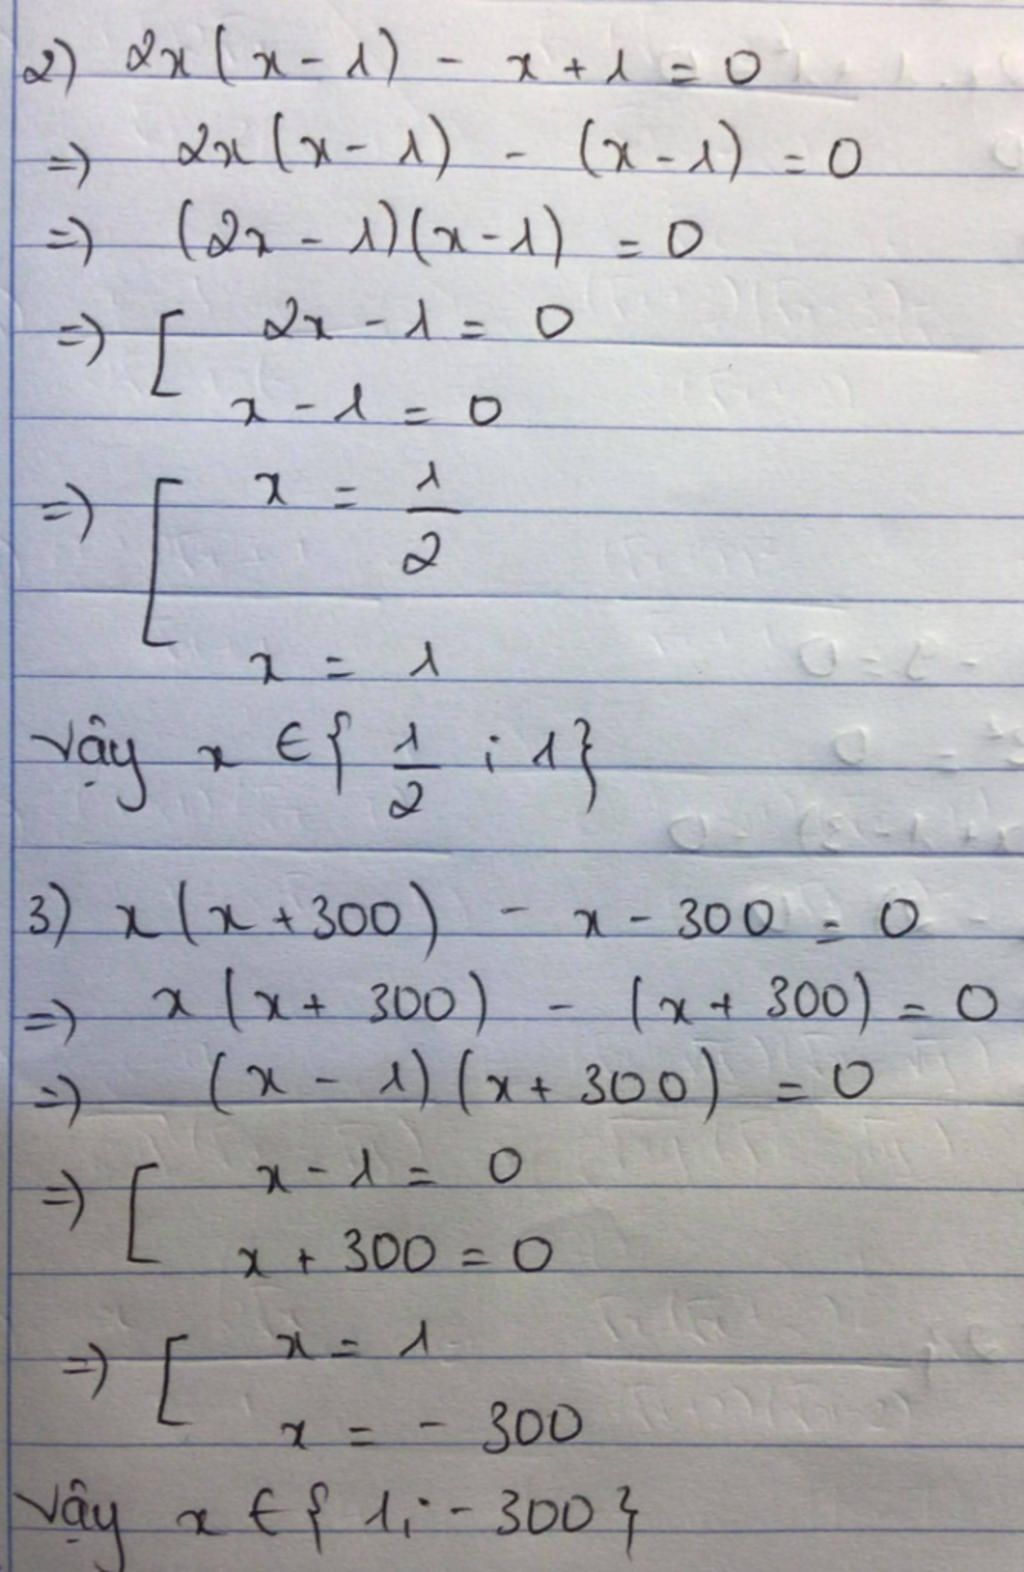 2) 2x(x-1) - x+1 = 0
=) 2x(x-1) - (x-1) = 0
=) (2x-1)(x-1) = 0
=) [ 2x-1 = 0
x-1 = 0
=) [ x = 1/2
x = 1
Vậy x ∈ { 1/2 ; 1}
3) x(x+300) - x-300 = 0
=) x(x+300) - (x+300) = 0
=) (x-1)(x+300) = 0
=) [ x-1 = 0
x+300 = 0
=) [ x = 1
x = -300
Vậy x ∈ { 1; -300}